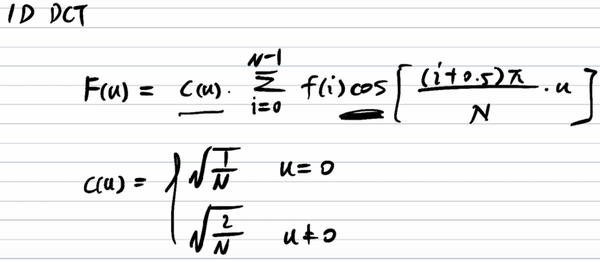 1D DCT
F(u) = c(u). \sum_{i=0}^{N-1} f(i) cos [ \frac{(i+0.5)π}{N} · u ]
c(u) = { \sqrt{\frac{1}{N}} u = 0
\sqrt{\frac{2}{N}} u ≠ 0